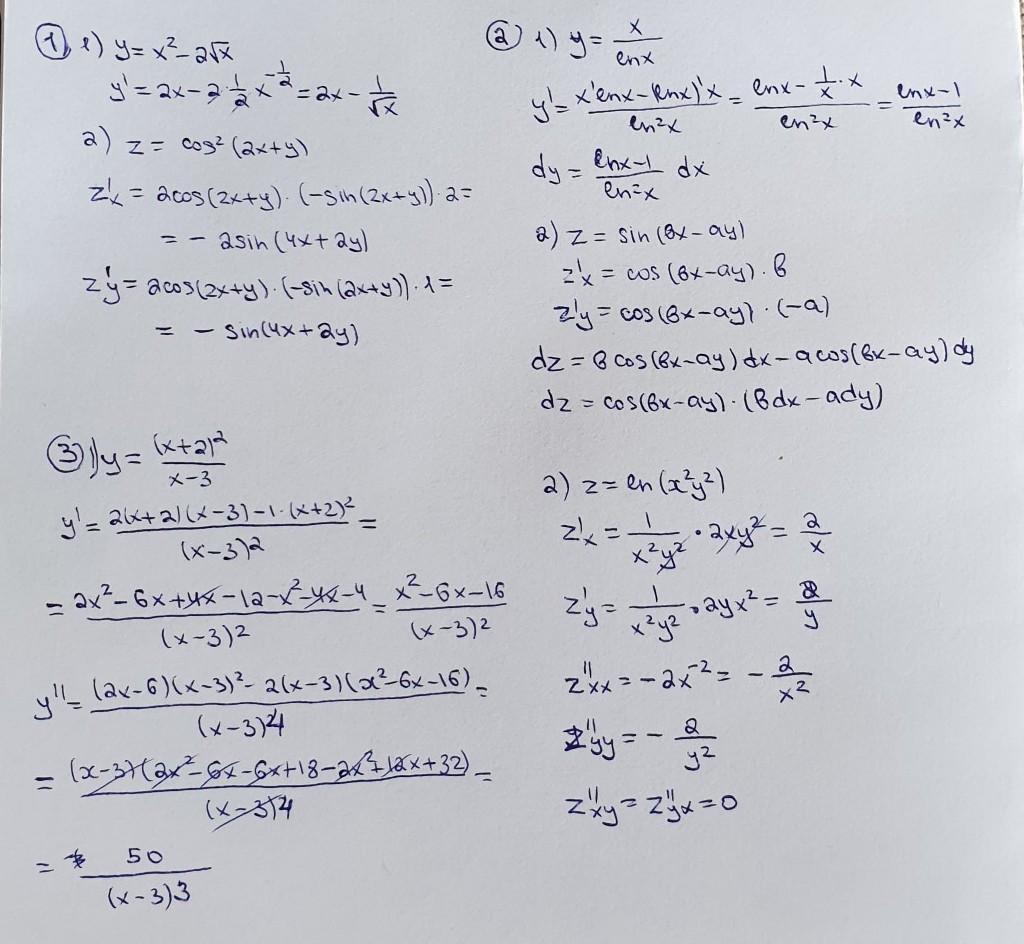 ① 1) y = x² - 2√x
y' = 2x - 2·1/2 x^(-1/2) = 2x - 1/√x
2) z = cos² (2x+y)
z'x = 2cos(2x+y)·(-sin(2x+y))·2 =
= - 2sin(4x+2y)
z'y = 2cos(2x+y)·(-sin(2x+y))·1 =
= - sin(4x+2y)
② 1) y = x/lnx
y' = (x'lnx - (lnx)'x)/ln²x = (lnx - 1/x·x)/ln²x = (lnx-1)/ln²x
dy = (lnx-1)/ln²x dx
2) z = sin(bx-ay)
z'x = cos(bx-ay)·b
z'y = cos(bx-ay)·(-a)
dz = b cos(bx-ay)dx - a cos(bx-ay)dy
dz = cos(bx-ay)·(bdx - ady)
③ 1) y = (x+2)²/(x-3)
y' = (2(x+2)(x-3) - 1·(x+2)²)/(x-3)² =
= (2x² - 6x + 4x - 12 - x² - 4x - 4)/(x-3)² = (x² - 6x - 16)/(x-3)²
y'' = ((2x-6)(x-3)² - 2(x-3)(x²-6x-16))/(x-3)⁴ =
= (x-3)(2x² - 6x - 6x + 18 - 2x² + 12x + 32)/(x-3)⁴ =
= 50/(x-3)³
2) z = ln(x²y²)
z'x = 1/(x²y²) · 2xy² = 2/x
z'y = 1/(x²y²) · 2yx² = 2/y
z''xx = -2x⁻² = - 2/x²
z''yy = - 2/y²
z''xy = z''yx = 0